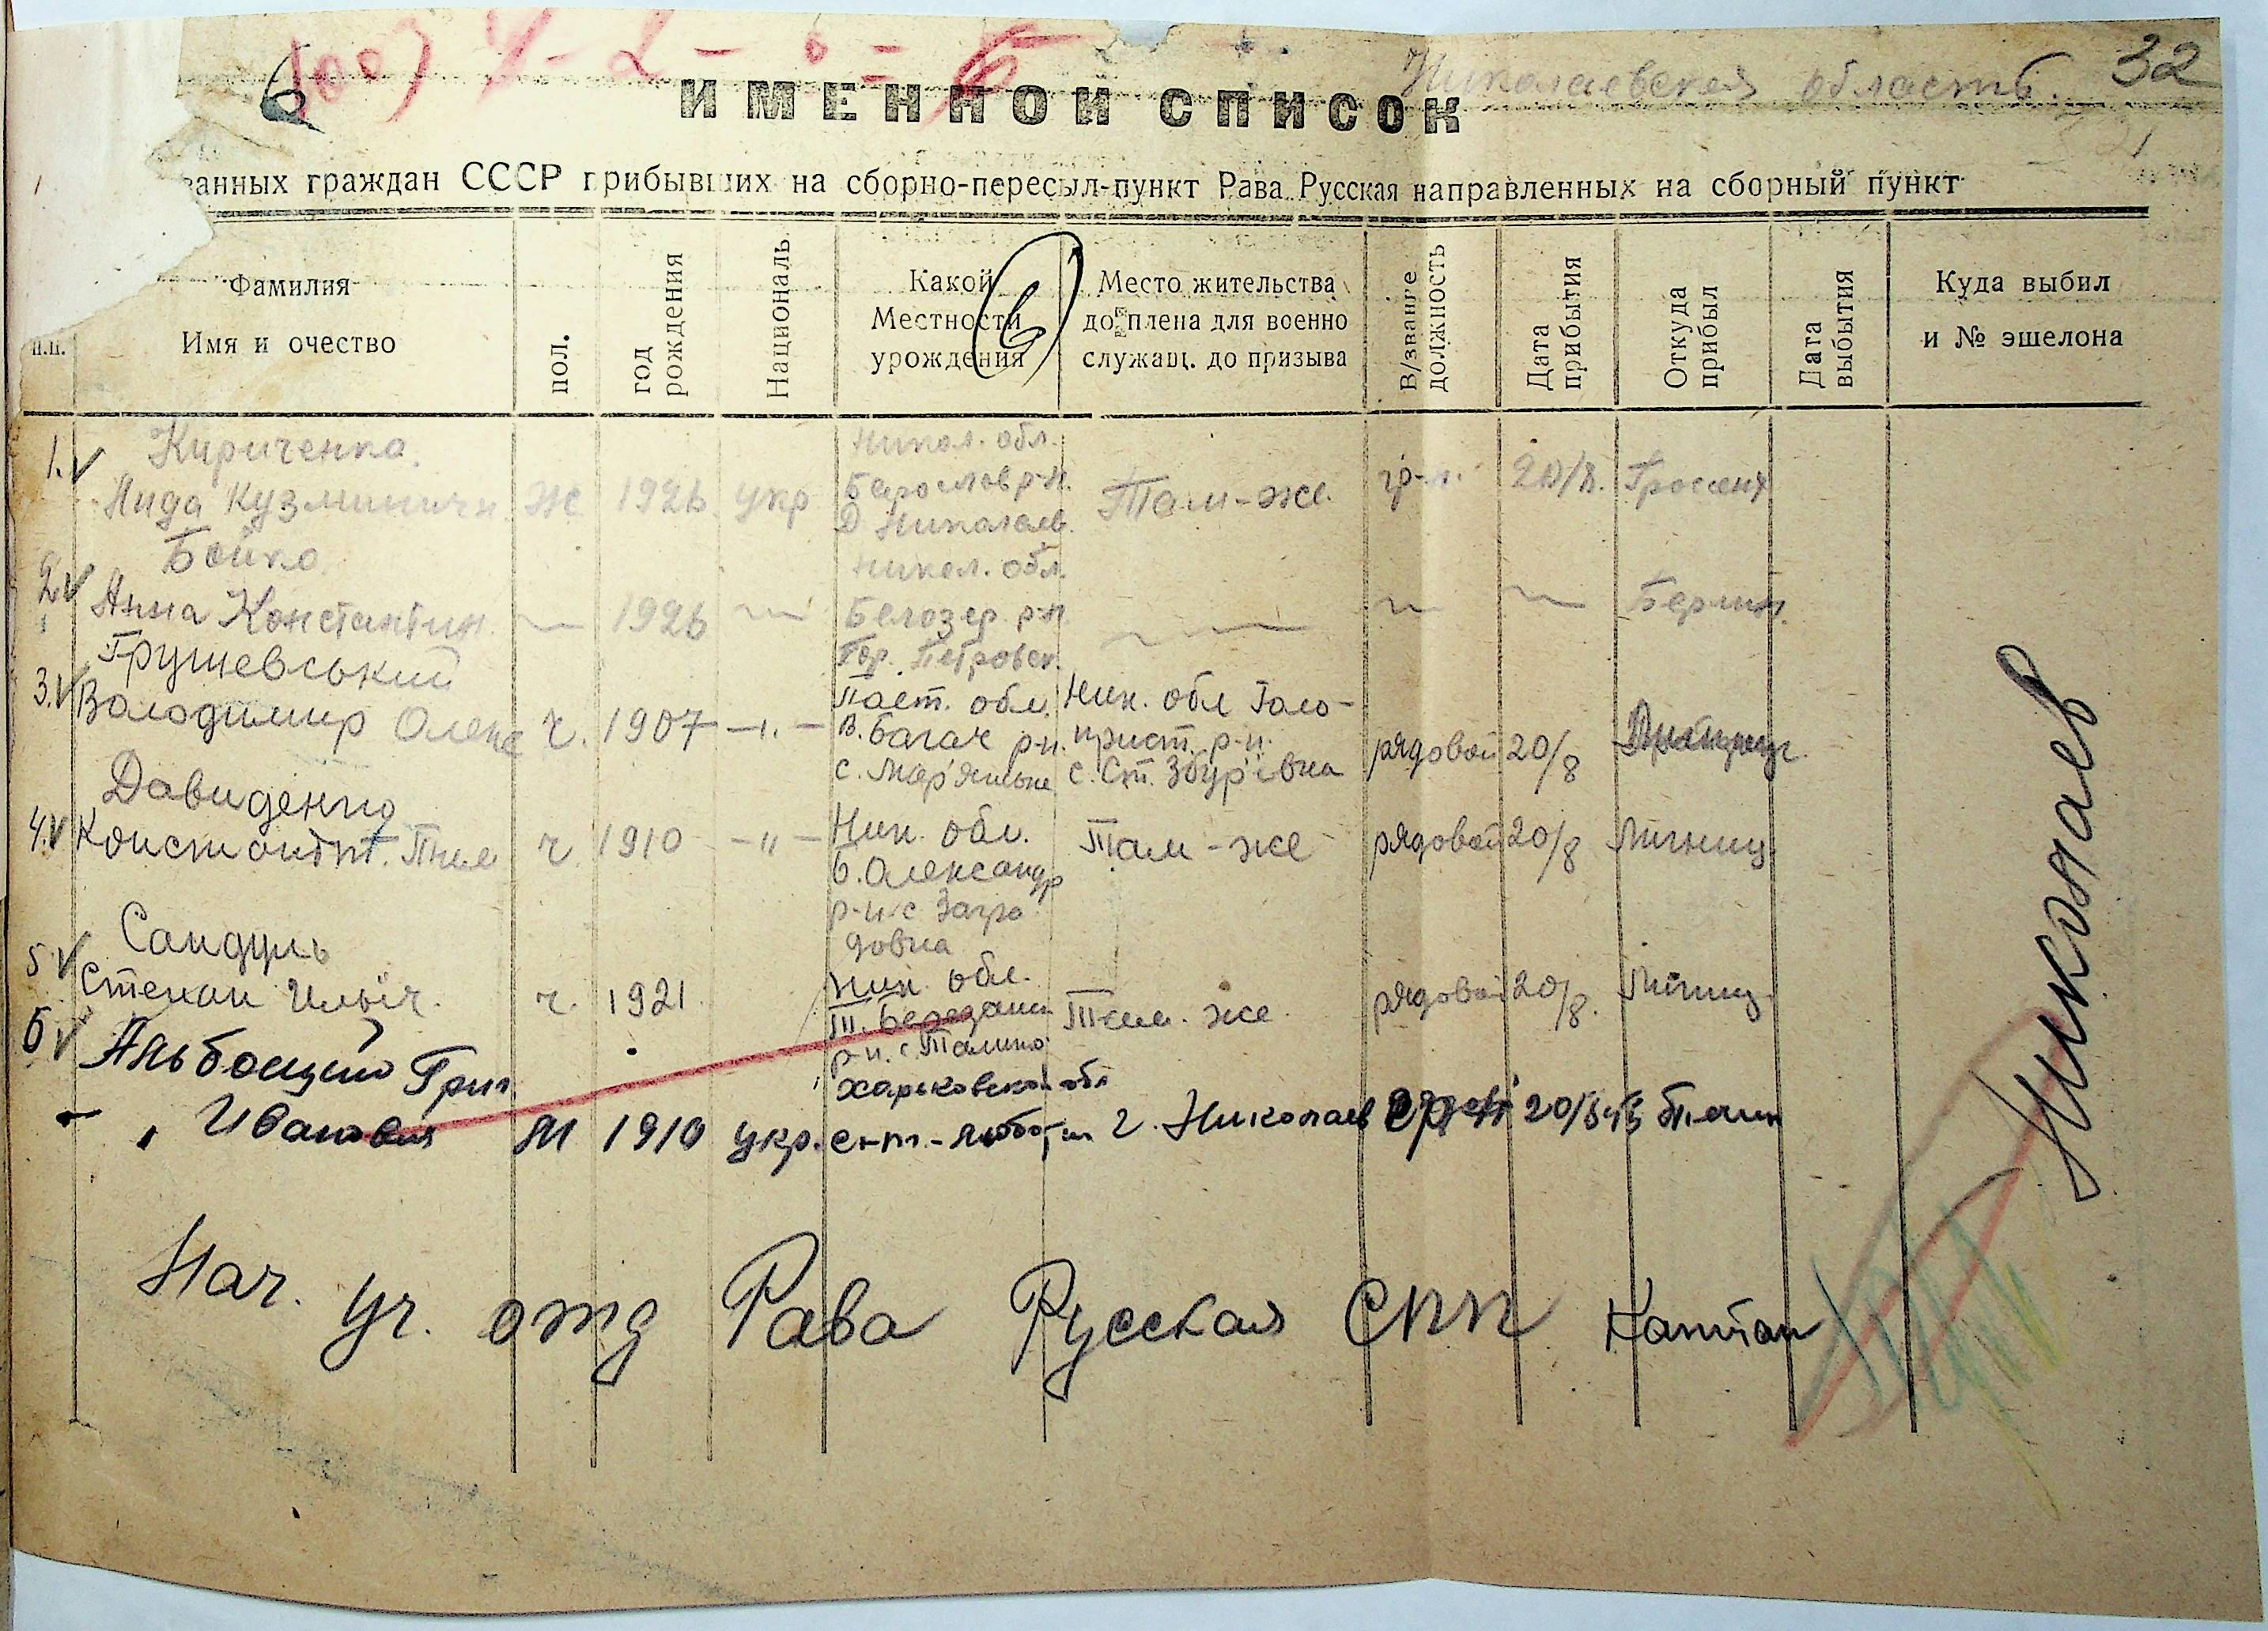 6
Николаевская область. 32
ИМЕННОЙ СПИСОК
ванных граждан СССР прибывших на сборно-пересыл-пункт Рава Русская направленных на сборный пункт
п.п.
Фамилия
Имя и очество
пол.
год рождения
Националь
Какой
Местности
урождения
6
Место жительства
до плена для военно
служащ. до призыва
В/звание должность
Дата прибытия
Откуда прибыл
Дата выбытия
Куда выбил
и № эшелона
1. Кириченко Никол. обл.
Лида Кузминичн Ж 1926 укр Бериславр-н. Там-же гр-н. 20/8.
Д Николаев.
2 Бойко Никол. обл.
Анна Константин. 1926 Белозер. р-н Берлин.
Гор. Петровск.
3. Грушевський Полт. обл. Ник. обл Голо-
Володимир Олекс ч. 1907 -"- В. Багач р-н. прист. р-н. рядовой 20/8
с. Мар'янське с. Ст. Збур'євка
4. Давиденко Ник. обл.
Константт. ч. 1910 -"- В. Олександр Там-же рядовой 20/8 Лігниц
р-н с. Загра
довка
5 Сандуль Ник. обл.
Степан Ильїч. ч. 1921 Т. Березан Там. же рядовой 20/8. Лігниц
р-н. с.
6 Григ Харьковской обл
Иванович М 1910 укр. г. Николаев
Николаев
Нач. уч. отд Рава Русская СПП Капитан